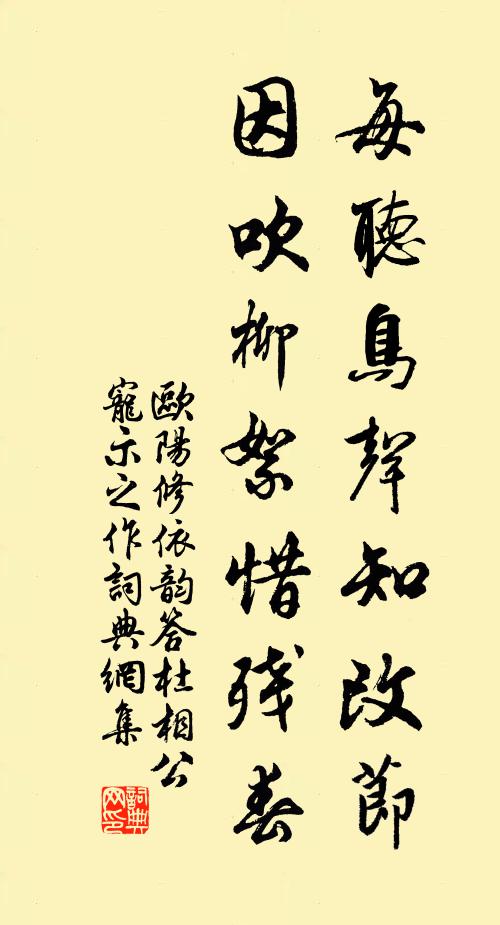 每聽鳥聲知改節
因吹柳絮惜残春
歐陽修依韵答杜相公
寵示之作詞典網集
詞典
网印